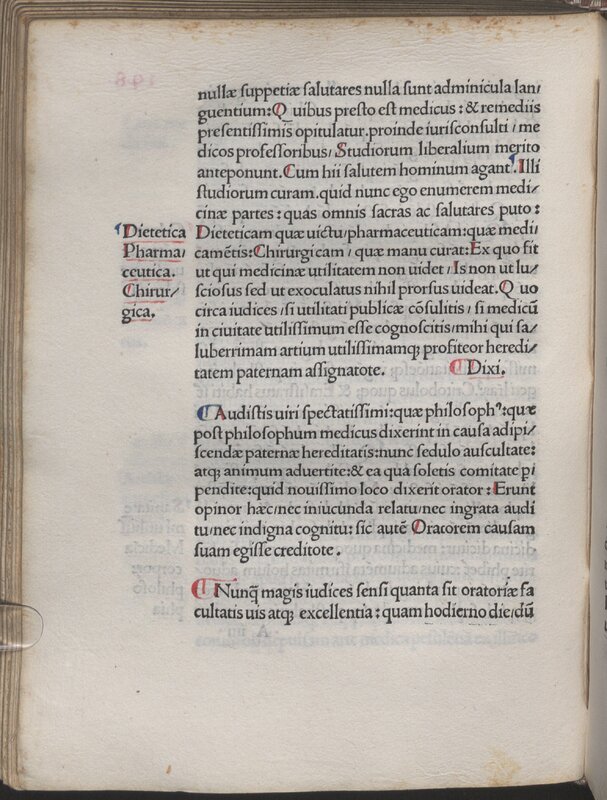 nullæ suppetiæ salutares nulla sunt adminicula lan/
guentium: Quibus presto est medicus: & remediis
presentissimis opitulatur. proinde iurisconsulti / me
dicos professoribus / Studiorum liberalium merito
anteponunt. Cum hii salutem hominum agant. Illi
studiorum curam. quid nunc ego enumerem medi/
cinæ partes: quas omnis sacras ac salutares puto:
Dietetica
Pharma/
ceutica.
Chirur/
gica.
Dieteticam quæ uictu / pharmaceuticam: quæ medi
camētis: Chirurgicam / quæ manu curat: Ex quo fit
ut qui medicinæ utilitatem non uidet / Is non ut lu/
sciosus sed ut exoculatus nihil prorsus uideat. Quo
circa iudices / si utilitati publicæ cōsulitis / si medicū
in ciuitate utilissimum esse cognoscitis / mihi qui sa/
luberrimam artium utilissimamqꝫ profiteor heredi/
tatem paternam assignatote. Dixi.
Audistis uiri spectatissimi: quæ philosophꝰ: quæ
post philosophum medicus dixerint in causa adipi/
scendæ paternæ hereditatis: nunc sedulo auscultate:
atqꝫ animum aduertite: & ea qua soletis comitate pi
pendite: quid nouissimo loco dixerit orator: Erunt
opinor hæc / nec iniucunda relatu / nec ingrata audi
tu / nec indigna cognitu: sic autē Oratorem causam
suam egisse creditote.
Nunq̄ magis iudices sensi quanta sit oratoriæ fa
cultatis uis atqꝫ excellentia: quam hodierno die / dū